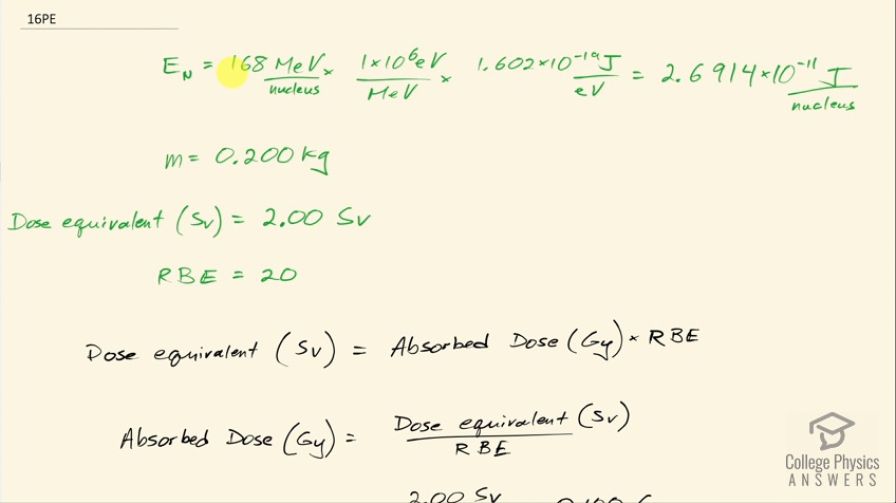 16PE
E_N = 168 MeV/nucleus × 1×10⁶eV/MeV × 1.602×10⁻¹⁹J/eV = 2.6914×10⁻¹¹ J/nucleus
m = 0.200 kg
Dose equivalent (Sv) = 2.00 Sv
RBE = 20
Dose equivalent (Sv) = Absorbed Dose (Gy) × RBE
Absorbed Dose (Gy) = Dose equivalent (Sv)/RBE
2.00 Sv
College Physics
ANSWERS